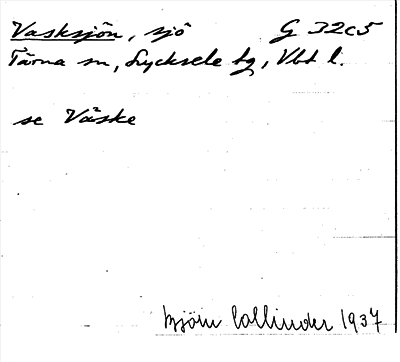 Vasksjön, sjö G 32c5
Tärna sn, Lycksele tg, Vbt l.
se Väske
Björn Collinder 1937